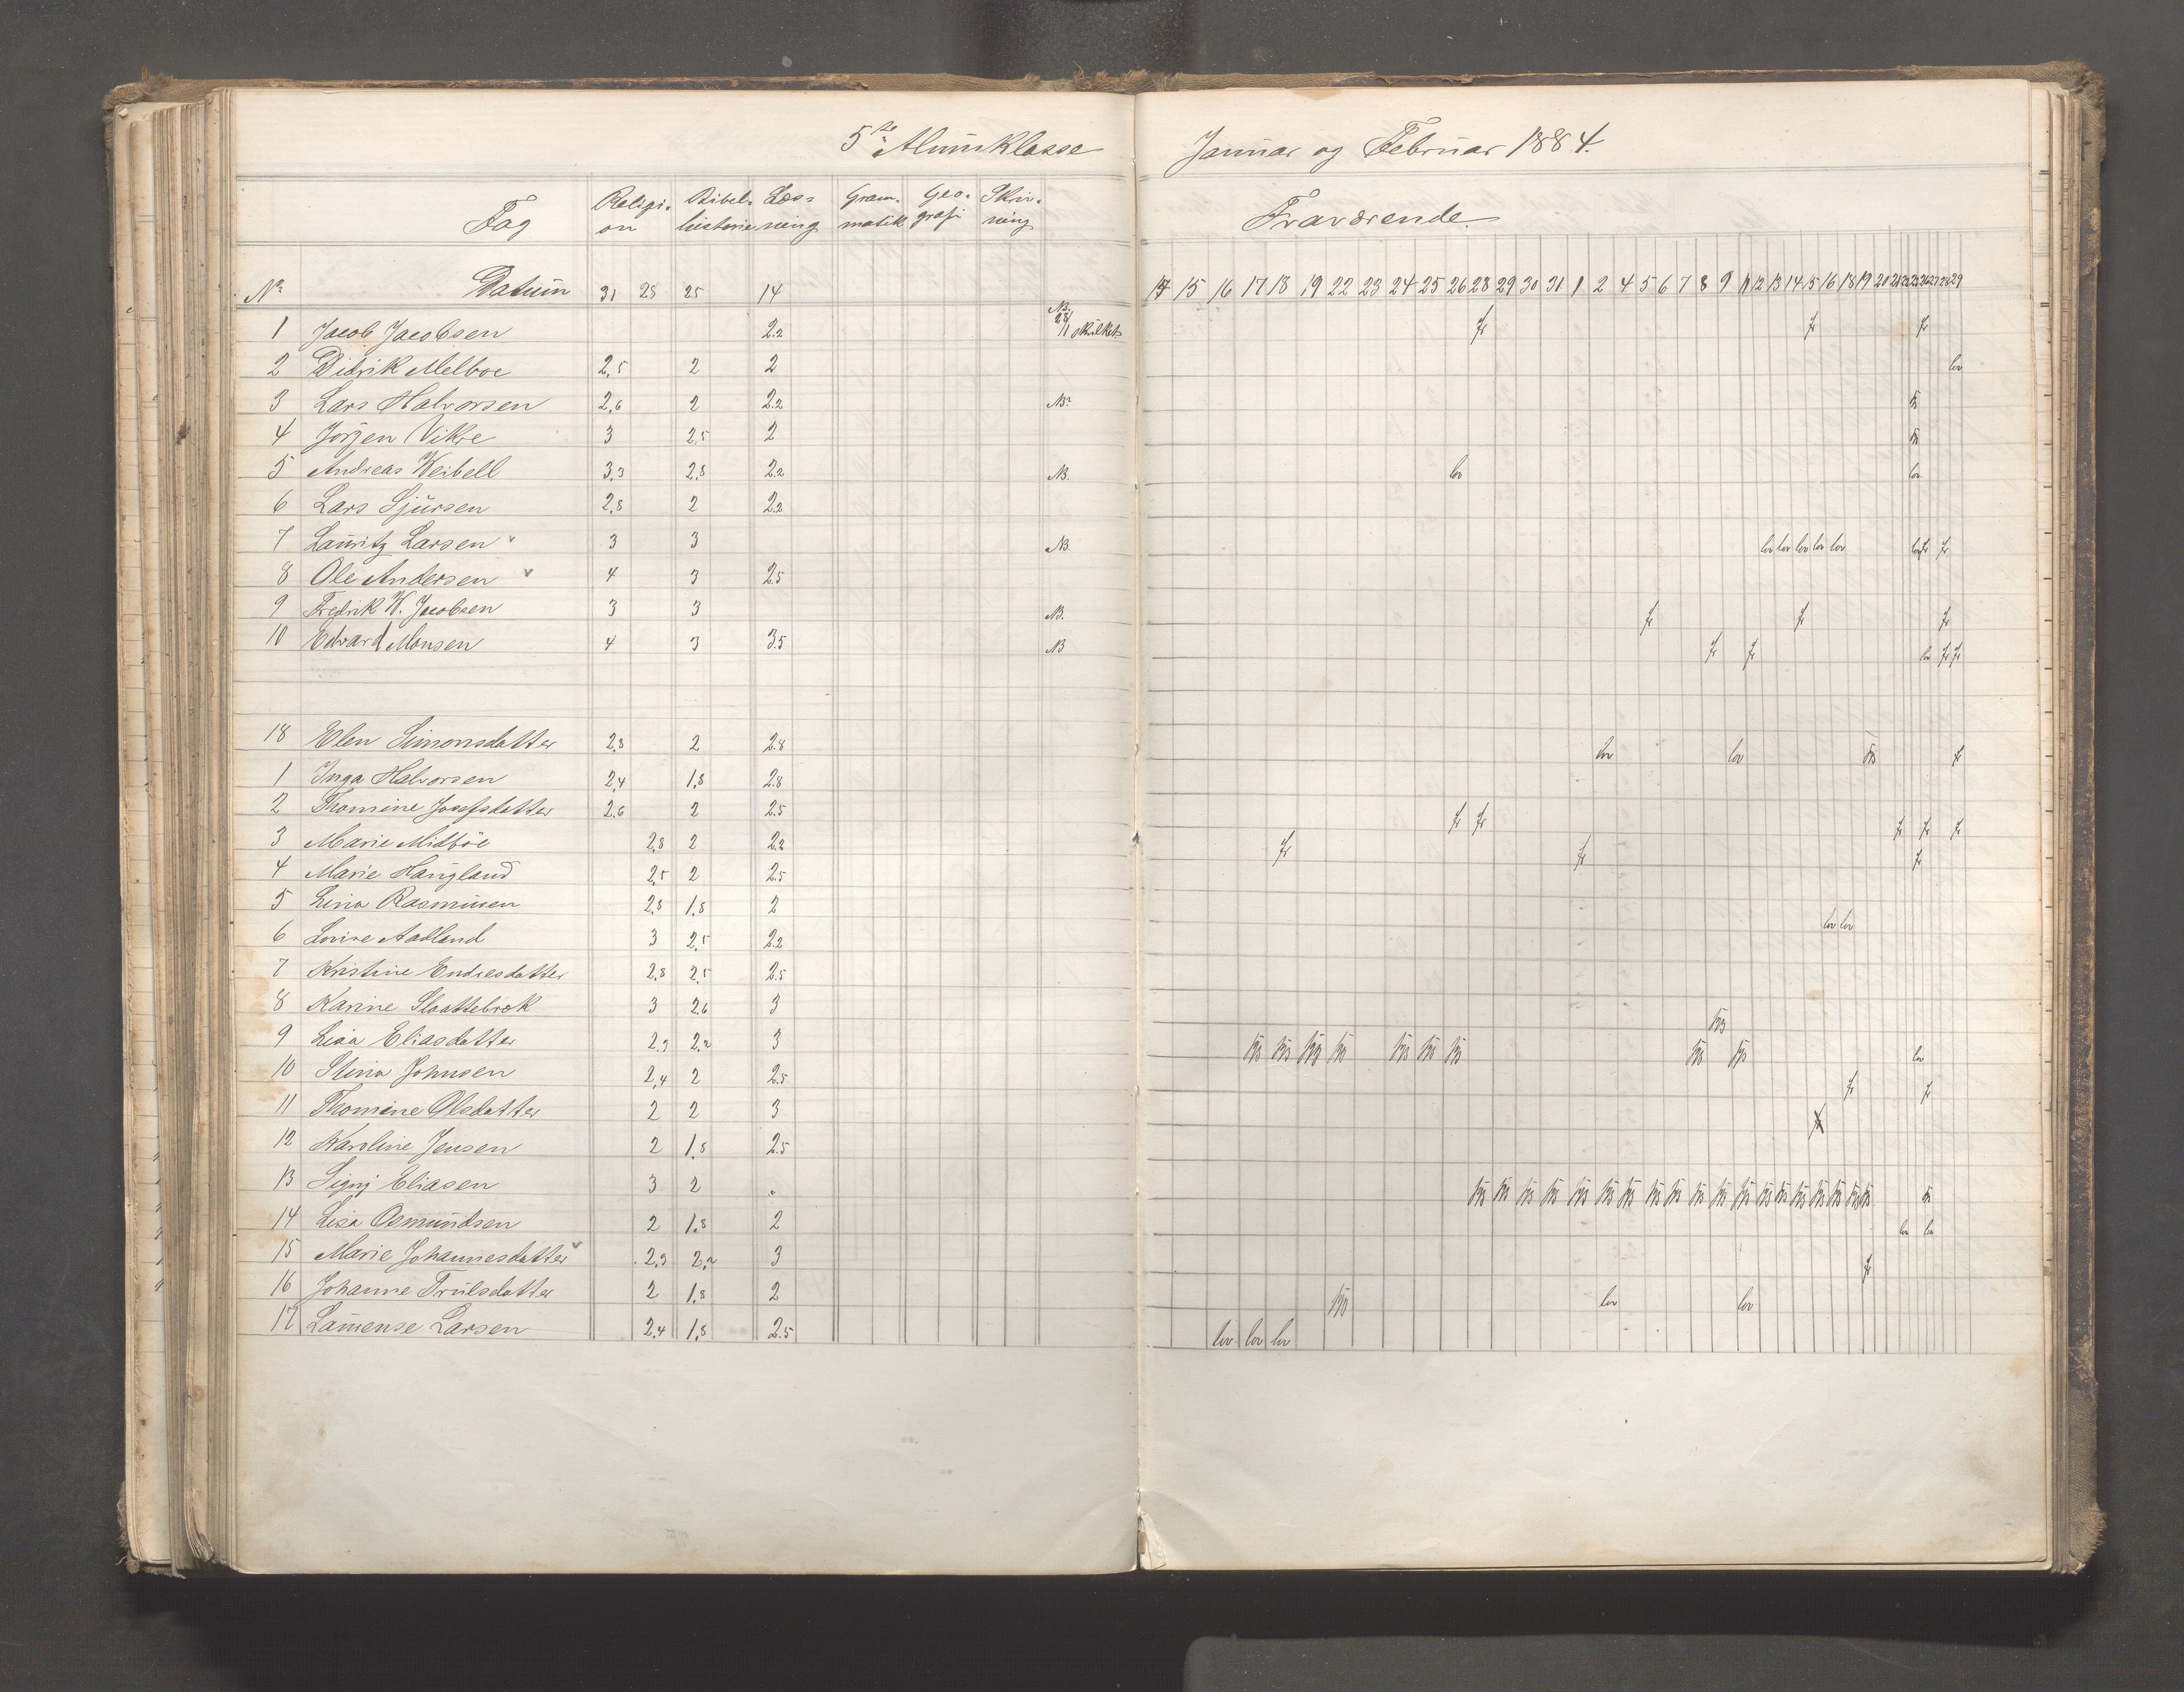 5te Almuklasse
Januar og Februar 1884.
Fag Religi- on Bibel- historie Læs- ning Gram- matik Geo- grafi Skriv- ning
Fraværende
No Datum 31 25 25 14
14 15 16 17 18 19 22 23 24 25 26 28 29 30 31 1 2 4 5 6 7 8 9 11 12 13 14 15 16 18 19 20 21 22 23 26 27 28 29
1 Jacob Jacobsen 2.2 NB. fr fr fr
2 Didrik Melboe 2,5 2 2 lov
3 Lars Halvorsen 2,6 2 2.2 NB
4 Jörgen Vikse 3 2,5 2
5 Andreas Weibell 3,3 2,8 2.2 NB. lov lov
6 Lars Sjursen 2,8 2 2.2
7 Lauritz Larsen v 3 3 NB lov lov lov lov lov lov fr fr
8 Ole Andersen v 4 3 2.5
9 Fredrik W. Jacobsen 3 3 NB. fr fr fr
10 Edvard Monsen 4 3 3.5 NB fr fr lov fr fr
18 Elen Simonsdatter 2,8 2 2.8 lov lov fr
1 Inga Halvorsen 2,4 1,8 2.8
2 Thomine Josefsdatter 2.6 2 2.5 fr fr fr fr fr
3 Marie Midböe 2,8 2 2.2 fr fr fr
4 Marie Haugland 2,5 2 2.5
5 Lina Rasmussen 2,8 1,8 2 lov lov
6 Lovise Aadland 3 2,5 2.2
7 Kristine Endresdatter 2,8 2,5 2.5
8 Karine Slaattebrek 3 2,6 3
9 Lisa Eliasdatter 2,3 2,2 3 lov
10 Stina Johnsen 2,4 2 2.5 fr fr
11 Thomine Olsdatter 2 2 3
12 Karoline Jensen 2 1,8 2.5
13 Signj Eliasen 3 2
14 Lisa Osmundsen 2 1,8 2 lov lov
15 Marie Johannesdatter v 2,3 2,2 3 fr
16 Johanne Trulsdatter 2 1,8 2 lov lov
17 Laurense Larsen 2,4 1,8 2.5 lov lov lov